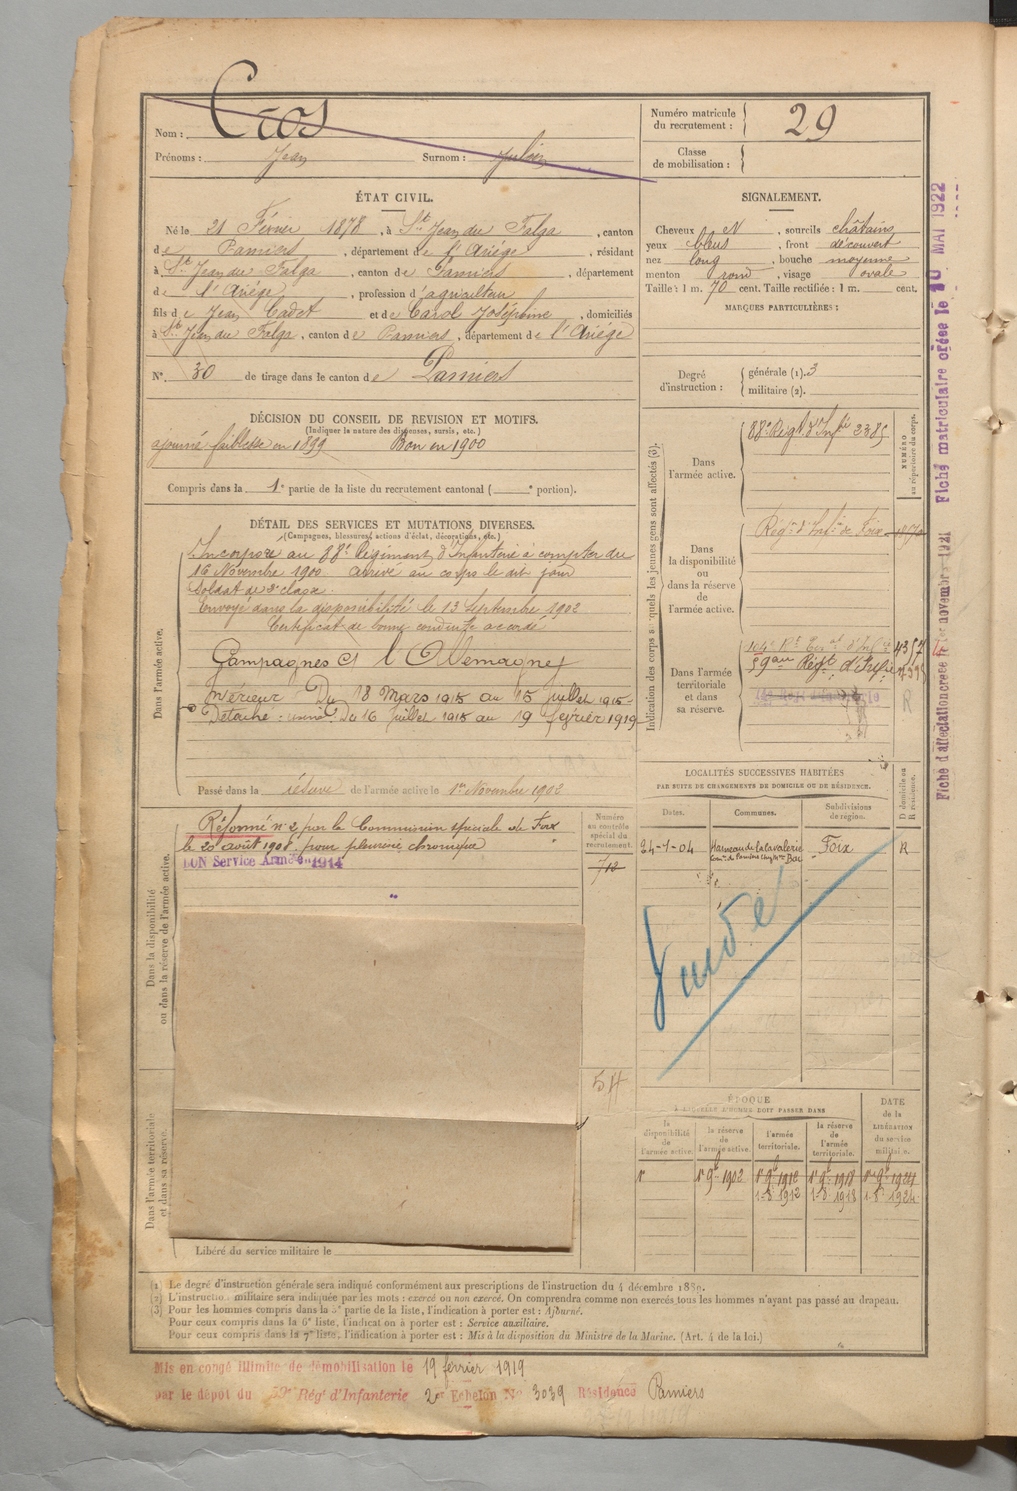 Nom : Cros
Prénoms : Jean Surnom : Julien
Numéro matricule du recrutement : 29
Classe de mobilisation :
ÉTAT CIVIL.
Né le 21 Février 1878, à St Jean du Falga, canton
de Pamiers, département de l'Ariége, résidant
à St Jean du Falga, canton de Pamiers, département
de l'Ariége, profession d'agriculteur
fils de Jean Cadet et de Carol Joséphine, domiciliés
à St Jean du Falga, canton de Pamiers, département de l'Ariége
N°. 30 de tirage dans le canton de Pamiers
SIGNALEMENT.
Cheveux et, sourcils châtains
yeux bleus, front découvert
nez long, bouche moyenne
menton rond, visage ovale
Taille : 1 m. 70 cent. Taille rectifiée : 1 m. cent.
MARQUES PARTICULIÈRES :
Degré d'instruction : générale (1). 3
militaire (2).
DÉCISION DU CONSEIL DE REVISION ET MOTIFS.
(Indiquer la nature des dispenses, sursis, etc.)
ajourné faiblesse en 1899 Bon en 1900
Compris dans la 1e partie de la liste du recrutement cantonal ( e portion).
DÉTAIL DES SERVICES ET MUTATIONS DIVERSES.
(Campagnes, blessures, actions d'éclat, décorations, etc.)
Dans l'armée active.
Incorporé au 88e Régiment d'Infanterie à compter du
16 Novembre 1900 arrivé au corps le dit jour
Soldat de 2e classe
Envoyé dans la disponibilité le 13 Septembre 1902
Certificat de bonne conduite accordé
Campagnes Ct l'Allemagne
Intérieur Du 18 Mars 1915 au 15 juillet 1915
Détaché : usine Du 16 juillet 1915 au 19 février 1919
Passé dans la réserve de l'armée active le 1er Novembre 1902
Indication des corps auxquels les jeunes gens sont affectés (3).
NUMÉRO au répertoire du corps.
Dans l'armée active.
88e Régt d'Infie 2385
Dans la disponibilité ou dans la réserve de l'armée active.
Régt d'Infie de Foix
Dans l'armée territoriale et dans sa réserve.
59eme Régt d'Infie
LOCALITÉS SUCCESSIVES HABITÉES
PAR SUITE DE CHANGEMENTS DE DOMICILE OU DE RÉSIDENCE.
Dates. Communes. Subdivisions de région. D domicile ou R résidence.
24-1-04 Hameau de Lacavalerie Foix R
Dans la disponibilité ou dans la réserve de l'armée active.
Numéro au contrôle spécial du recrutement.
712
Réformé n° 2 par la Commission spéciale de Foix
le 20 août 1908 pour pleurésie chronique
BON Service Armé 1914
54
Dans l'armée territoriale et dans sa réserve.
Libéré du service militaire le
ÉPOQUE
À LAQUELLE L'HOMME DOIT PASSER DANS
la disponibilité de l'armée active. la réserve de l'armée active. l'armée territoriale. la réserve de l'armée territoriale. DATE de la LIBÉRATION du service militaire.
1r 9b 1902 1r 9b 1912 1r 9b 1918 1r 9b 1924
1-8 1912 1-8 1918 1-8 1924
Fiche d'affectation créée le 1er novembre 1921
Fiche matriculaire créée le 10 MAI 1922
(1) Le degré d'instruction générale sera indiqué conformément aux prescriptions de l'instruction du 4 décembre 1889.
(2) L'instruction militaire sera indiquée par les mots : exercé ou non exercé. On comprendra comme non exercés tous les hommes n'ayant pas passé au drapeau.
(3) Pour les hommes compris dans la 3e partie de la liste, l'indication à porter est : Ajourné.
Pour ceux compris dans la 6e liste, l'indication à porter est : Service auxiliaire.
Pour ceux compris dans la 7e liste, l'indication à porter est : Mis à la disposition du Ministre de la Marine. (Art. 4 de la loi.)
Mis en congé illimité de démobilisation le 19 février 1919
par le dépôt du 59e Régt d'Infanterie 2e Echelon No 3039 Résidence Pamiers